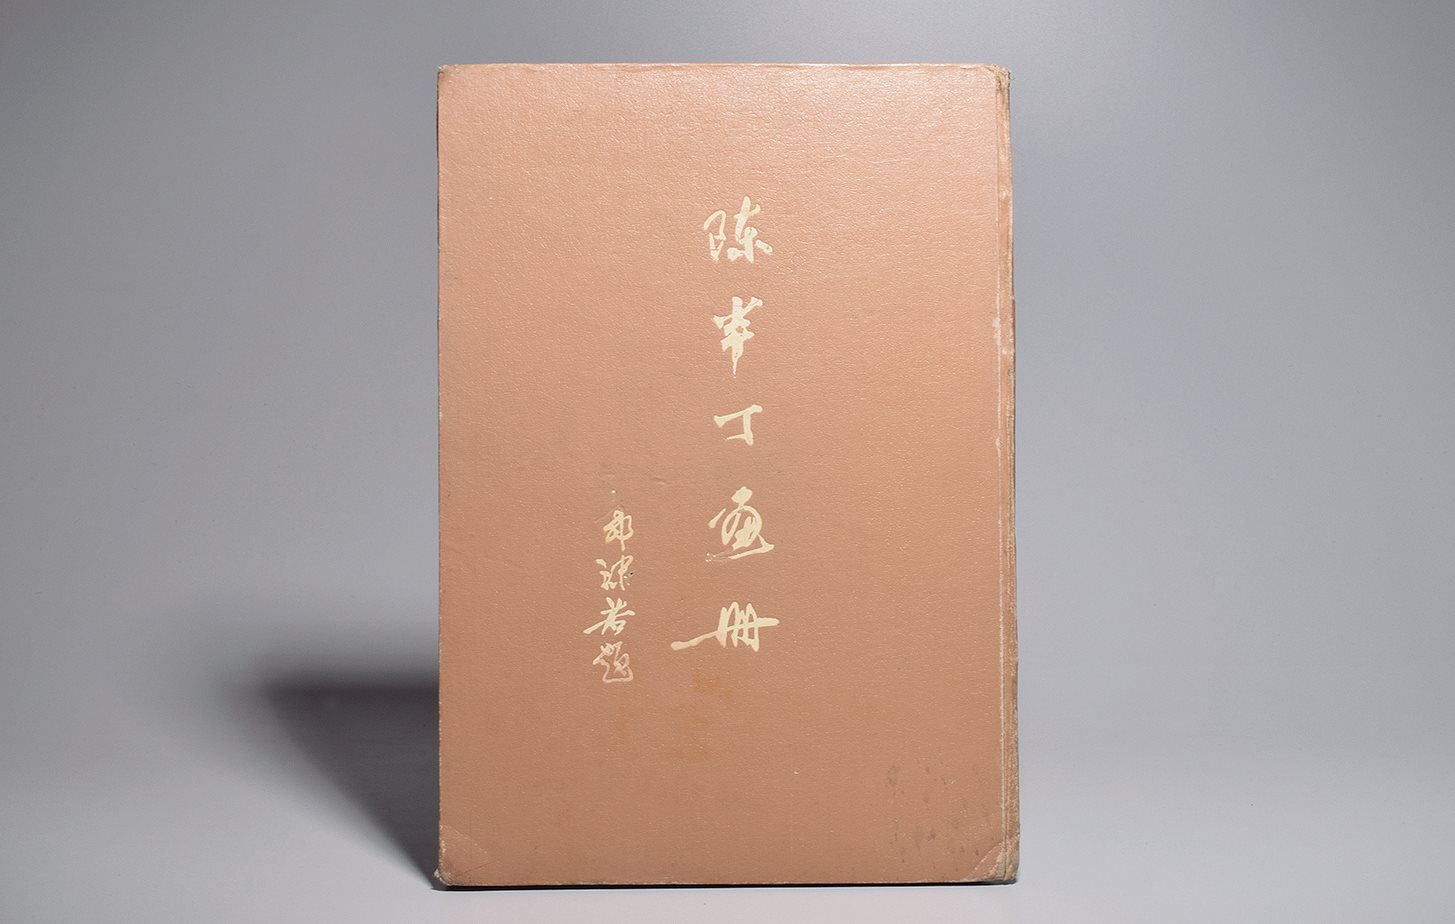 陈半丁画册
郭沫若题